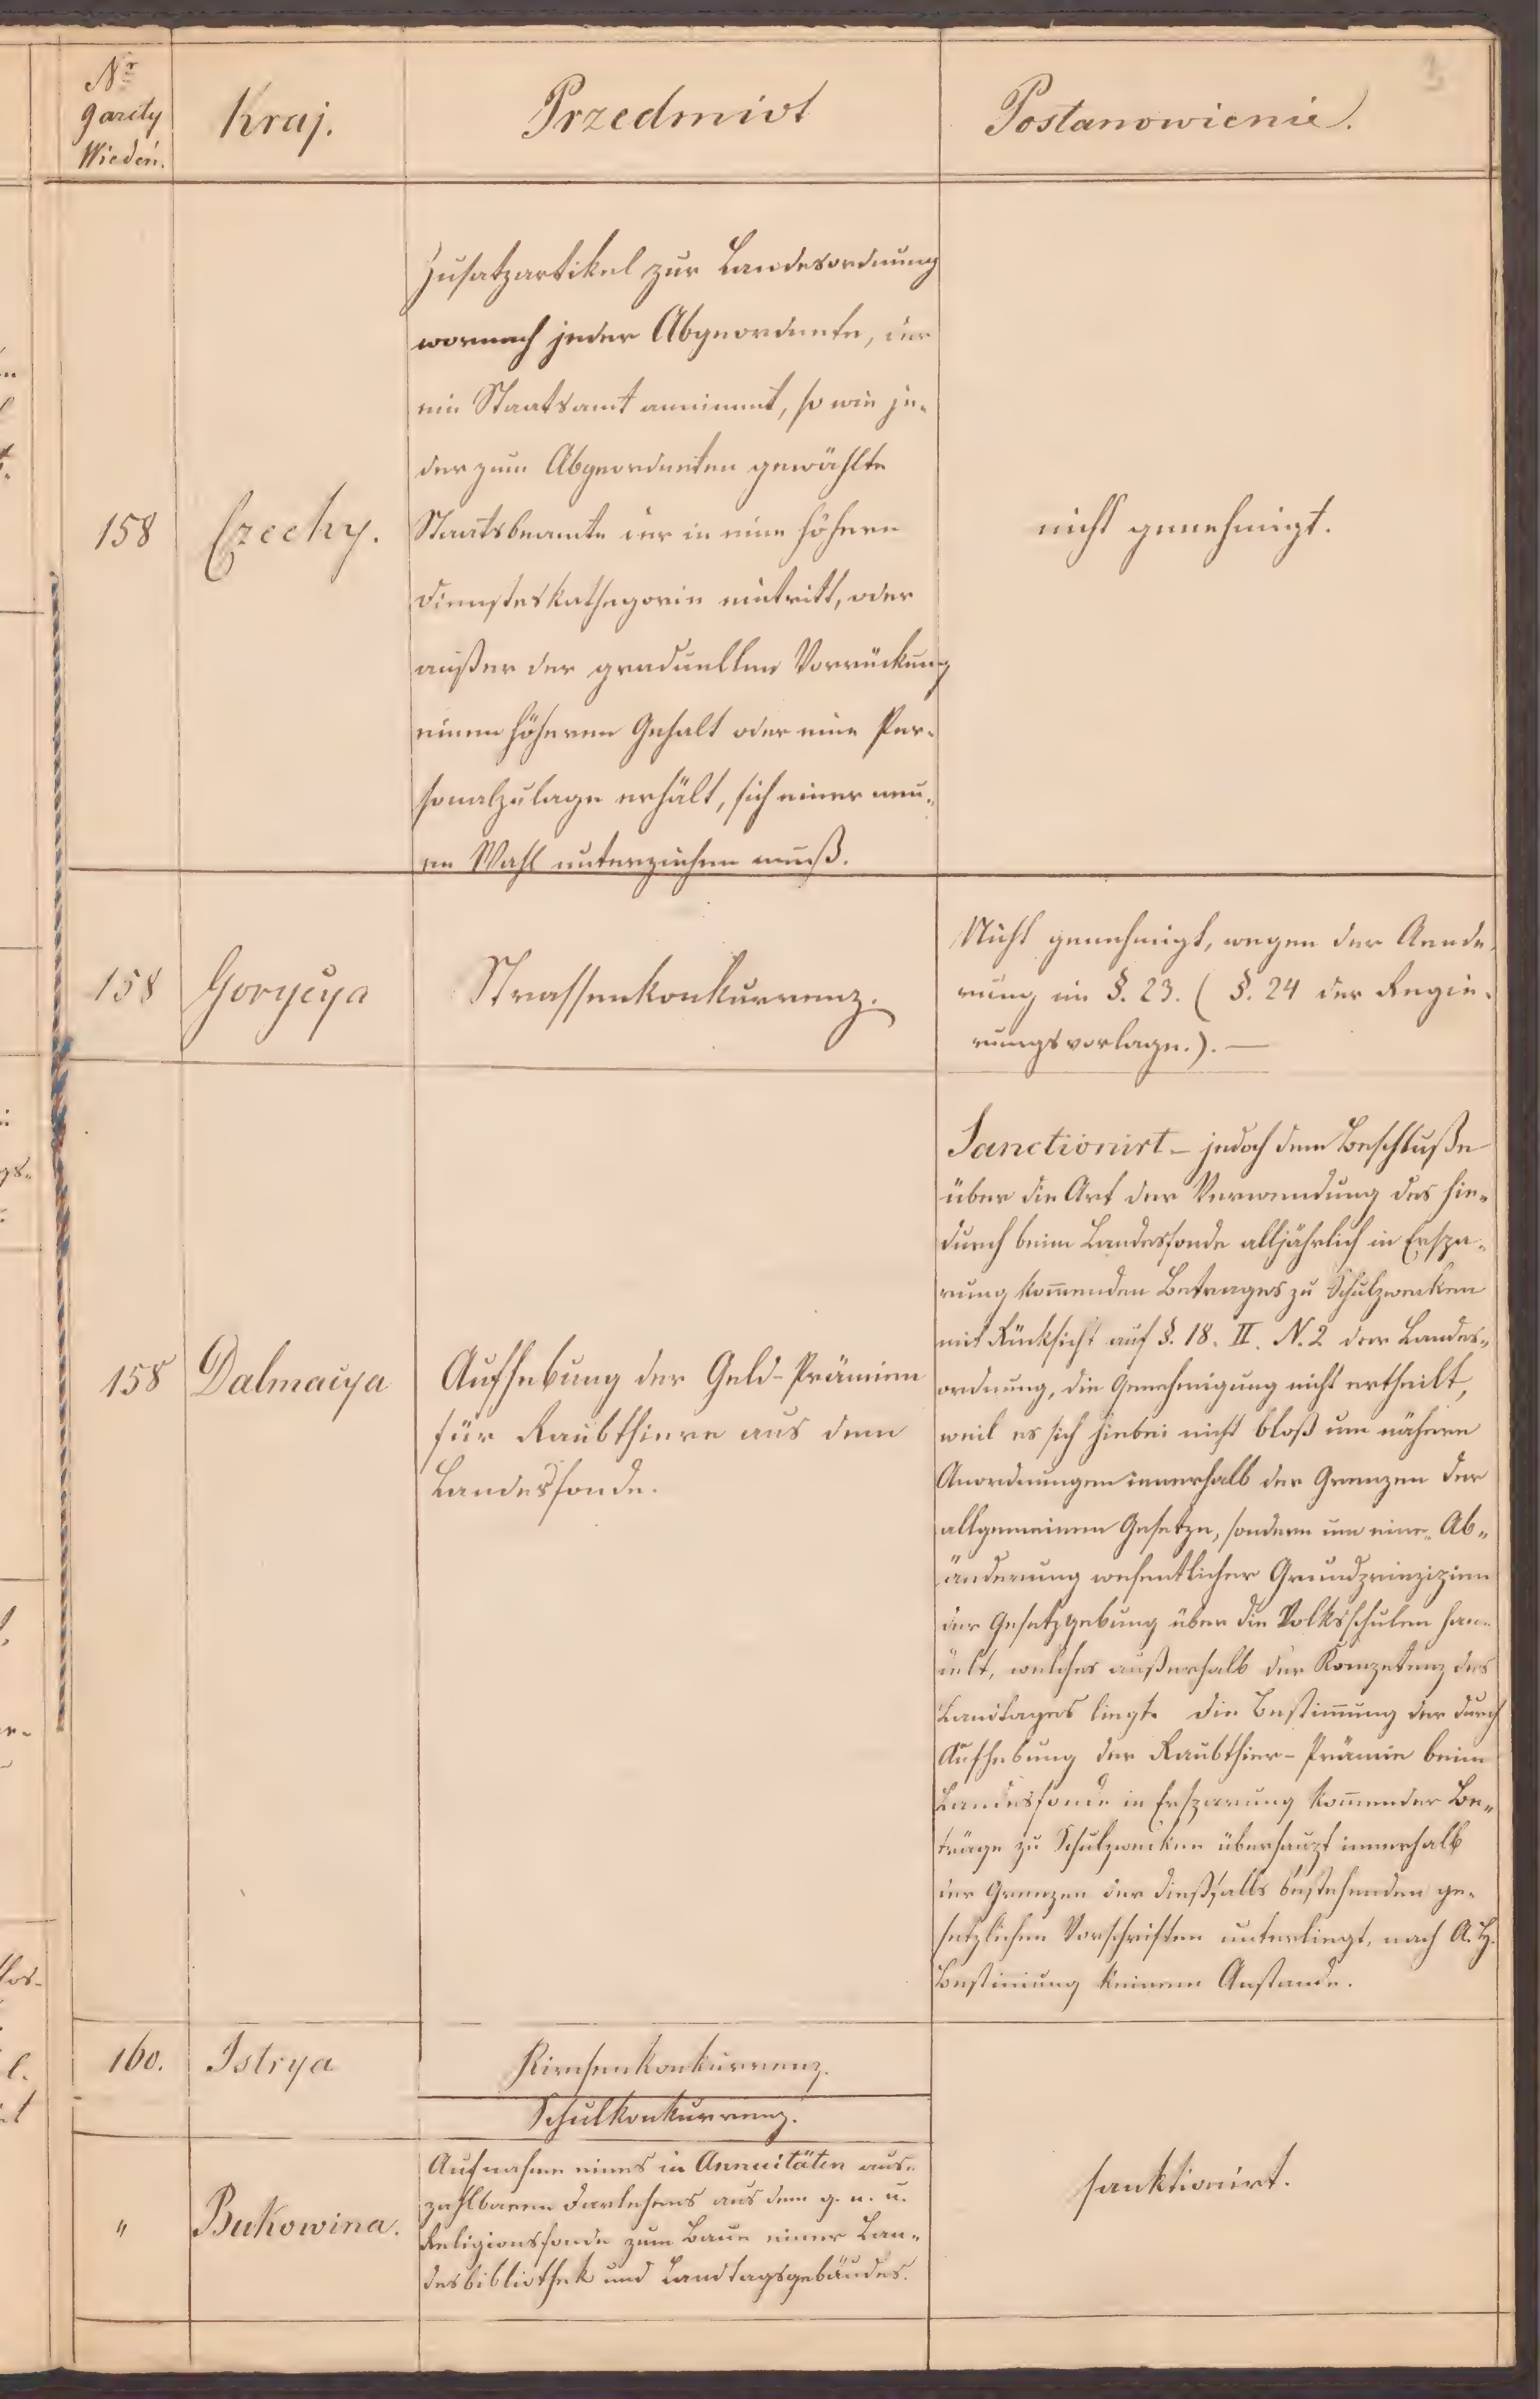 Nr
gazety
Wiedeń.
Kraj.
Przedmiot
Postanowienie.
158
Czechy.
Zusatzartikel zur Landesordnung
wornach jeder Abgeordnete, der
ein Staatsamt annimmt, so wie je-
der zum Abgeordneten gewählte
Staatsbeamte der in eine höhere
Dienstes Kathegorie eintritt, oder
außer der graduellen Vorrückung
einen höheren Gehalt oder eine Per-
sonalzulage erhält, sich einer neu-
en Wahl unterziehen muß.
nicht genehmigt.
158
Gorycya
Strassenkonkurrenz.
Nicht genehmigt, wegen der Aende-
rung im §. 23. ( §. 24 der Regie-
rungsvorlage.). —
158
Dalmacya
Aufhebung der Geld-Prämien
für Raubthiere aus dem
Landesfonde.
Sanctionirt – jedoch dem Beschluße
über die Art der Verwendung des hie-
durch beim Landesfonde alljährlich in Erspa-
rung kom̄enden Betrages zu Schulzwecken
mit Rücksicht auf §. 18. II. N. 2 der Landes-
ordnung, die Genehmigung nicht ertheilt,
weil es sich hiebei nicht bloß um nähere
Anordnungen innerhalb der Grenzen der
allgemeinen Gesetze, sondern um eine Ab-
änderung wesentlicher Grundprinzipien
der Gesetzgebung über die Volksschulen han-
delt, welches außerhalb der Kompetenz des
Landtages liegt. Die Bestim̄ung der durch
Aufhebung der Raubthier-Prämie beim
Landesfonde in Ersparung kom̄ender Be-
träge zu Schulzwecken überhaupt innerhalb
der Grenzen der dießfalls bestehenden ge-
setzlichen Vorschriften unterliegt, nach A. H.
Bestim̄ung keinem Anstande.
160.
Istrya
Kirchenkonkurrenz.
Schulkonkurrenz.
"
Bukowina.
Aufnahme eines in Annuitäten aus-
zahlbaren Darlehens aus dem g. n. u.
Religionsfonde zum Baue einer Lan-
desbibliothek und Landtagsgebäudes.
sanktionirt.